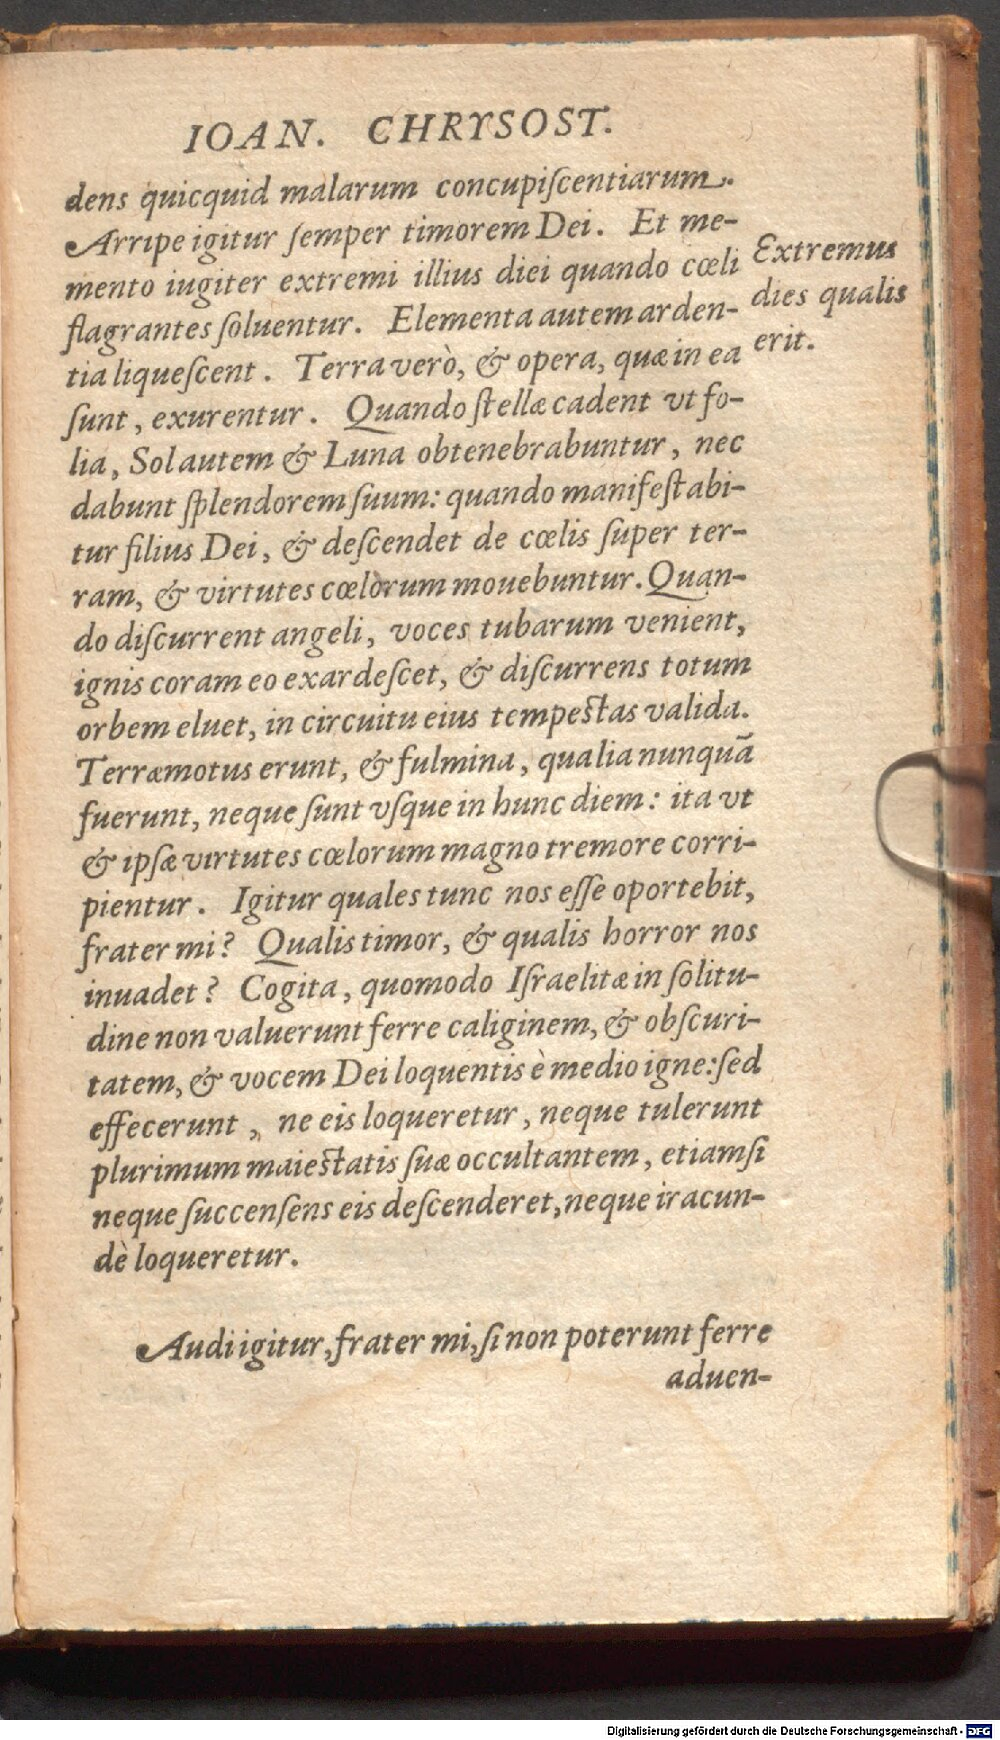 IOAN. CHRYSOST.
dens quicquid malarum concupiſcentiarum.
Arripe igitur ſemper timorem Dei. Et me-
mento iugiter extremi illius diei quando cœli
flagrantes ſoluentur. Elementa autem arden-
tia liqueſcent. Terra verò, & opera, quæ in ea
ſunt, exurentur. Quando ſtellæ cadent vt fo-
lia, Sol autem & Luna obtenebrabuntur, nec
dabunt ſplendorem ſuum: quando manifeſtabi-
tur filius Dei, & deſcendet de cœlis ſuper ter-
ram, & virtutes cœlorum mouebuntur. Quan-
do diſcurrent angeli, voces tubarum venient,
ignis coram eo exardeſcet, & diſcurrens totum
orbem eluet, in circuitu eius tempeſtas valida.
Terræmotus erunt, & fulmina, qualia nunquā
fuerunt, neque ſunt vſque in hunc diem: ita vt
& ipſæ virtutes cœlorum magno tremore corri-
pientur. Igitur quales tunc nos eſſe oportebit,
frater mi? Qualis timor, & qualis horror nos
inuadet? Cogita, quomodo Iſraelitæ in ſolitu-
dine non valuerunt ferre caliginem, & obſcuri-
tatem, & vocem Dei loquentis è medio igne: ſed
effecerunt, ne eis loqueretur, neque tulerunt
plurimum maieſtatis ſuæ occultantem, etiamſi
neque ſuccenſens eis deſcenderet, neque iracun-
dè loqueretur.
Audi igitur, frater mi, ſi non poterunt ferre
aduen-
Extremus
dies qualis
erit.
Digitalisierung gefördert durch die Deutsche Forschungsgemeinschaft - DFG